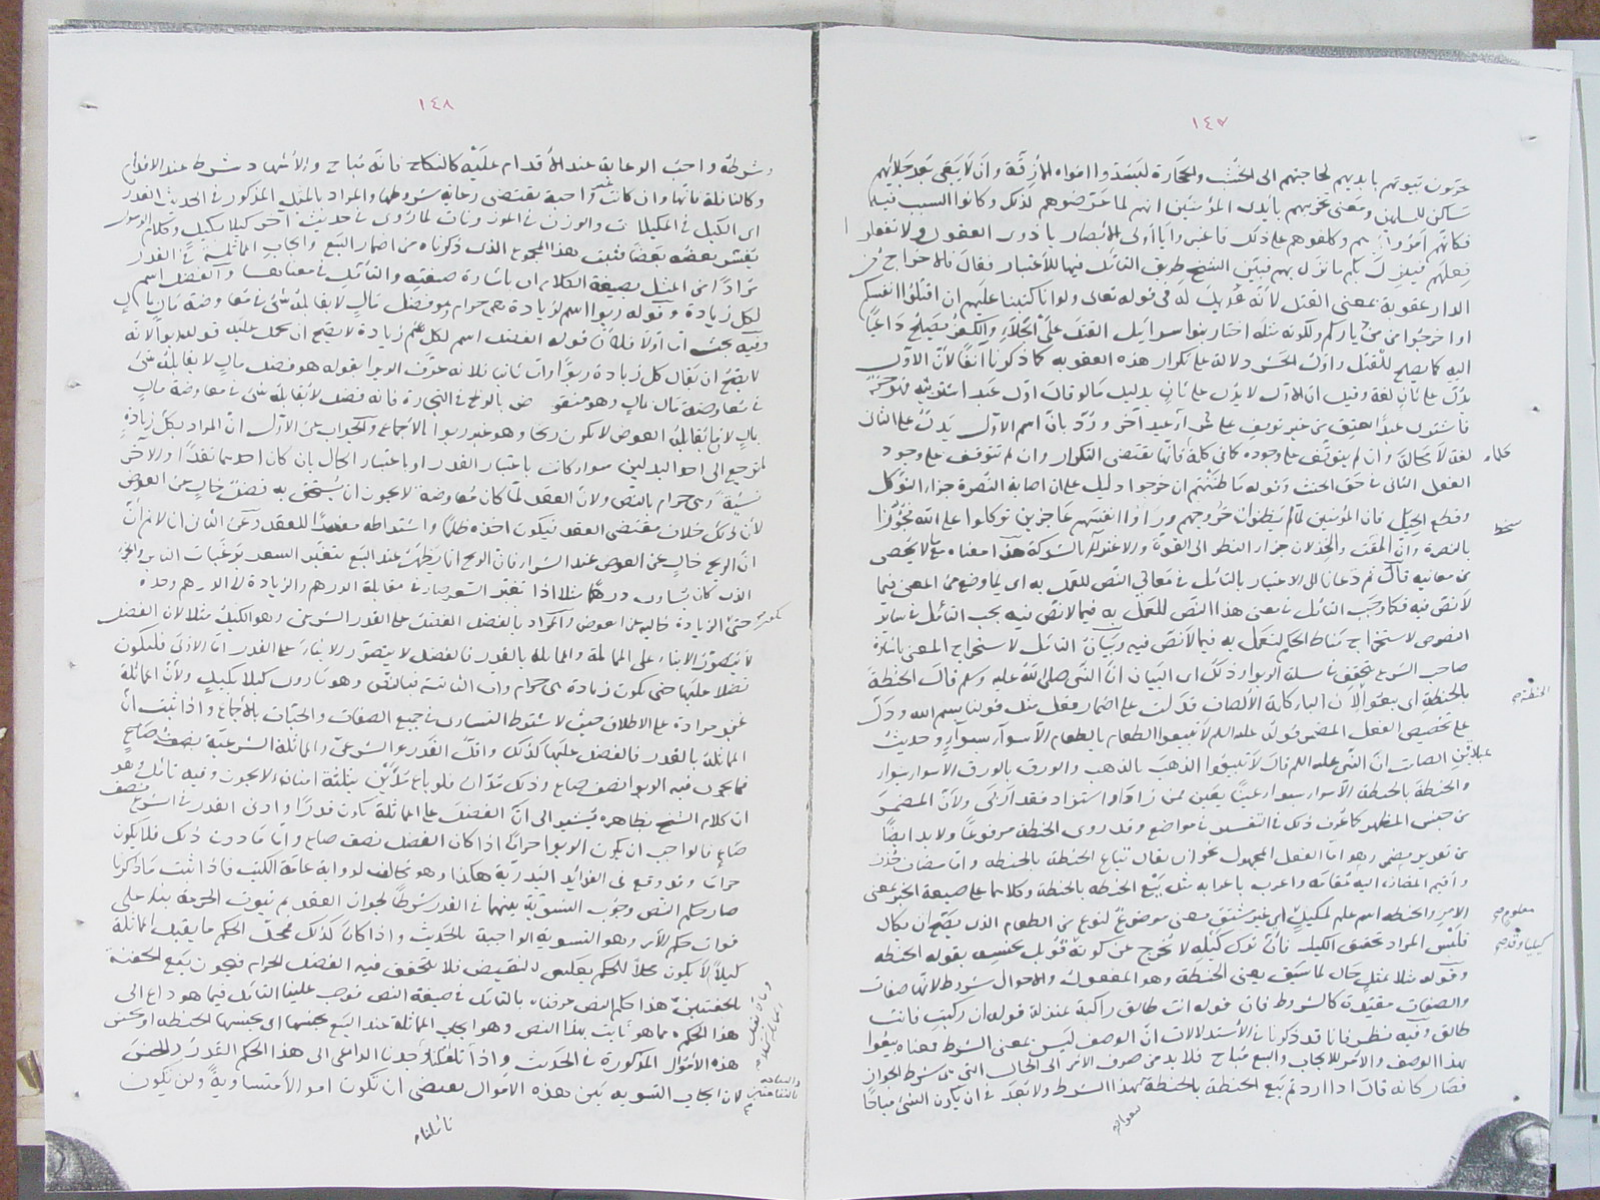 ١٤٧
يخربون بيوتهم بايديهم لحاجتهم الى الخشب والحجارة ليسدوا افواه الازقة وان لا يبقى بعد جلائهم
مساكن للمسلمين ومعنى تخريبهم بايدى المؤمنين انهم لما عرضوهم لذلك وكانوا السبب فيه
فكانهم امروا بهم وكلفوهم على ذلك فاعتبروا يا اولى الابصار يا ذوى العقول ولا تفعلوا
فعلهم فينزل بكم ما نزل بهم فبين الشيخ طريق التامل فيها للاعتبار فقال فالاخراج من
الدار عقوبة بمعنى القتل لانه عديل له فى قوله تعالى ولو انا كتبنا عليهم ان اقتلوا انفسكم
او اخرجوا من دياركم ولكونه مثله اختار بنوا سرائيل القتل على الجلاء والكفر يصلح داعيا
اليه كما يصلح للقتل واول الحشر دلالة على تكرار هذه العقوبة كما ذكرنا انفا لان الاول
يدل على ثان لغة وفيه ان الاول لا يدل على ثان بدليل ما لو قال اول عبد اشتريته فهو حر
فاشترى عبدا يعتق من غير توقف على شراء عبد آخر ورد بان اسم الاول يدل على الثانى
لغة لا محالة وان لم يتوقف على وجوده كما فى كلمة كلما فانها تقتضى التكرار وان لم تتوقف على وجود
الفعل الثانى فى حق الحنث وقوله ما ظننتم ان يخرجوا دليل على ان اصابة النصرة جزاء التوكل
وقطع الحيل فان المؤمنين لما لم يظنوا خروجهم وراوا انفسهم عاجزين توكلوا على الله فجوزوا
بالنصرة وان المقت والخذلان جزاء النظر الى القوة والاعتداد بالشوكة هذا معناه مما لا يحصى
من معانيه قال ثم دعانا الى الاعتبار بالتامل فى معانى النص للعمل به اى بما وضح من المعنى فيما
لا نص فيه فكما وجب التامل فى معنى هذا النص للعمل به فيما لا نص فيه يجب التامل فى سائر
النصوص لاستخراج مناط الحكم ليعمل به فيما لا نص فيه وبيان التامل لاستخراج المعنى باشارة
صاحب الشرع يتحقق فى مسئلة الربوا وذلك اى البيان ان النبى صلى الله عليه وسلم قال الحنطة
بالحنطة اى بيعوا لان الباء كلمة الالصاق فدلت على اضمار فعل مثل قولنا بسم الله ودل
على تخصيص الفعل المضمر قوله عليه السلام لا تبيعوا الطعام بالطعام الا سواء بسواء وحديث
عبادة بن الصامت ان النبى عليه السلام قال لا تبيعوا الذهب بالذهب والورق بالورق الا سواء بسواء
والحنطة بالحنطة الا سواء بسواء عينا بعين فمن زاد او استزاد فقد اربى ولان المضمر
من جنس المظهر كما عرف ذلك فى التفسير فى مواضع وقد روى الحنطة مرفوعا ولا بد ايضا
من تقدير مضمر وهو اما الفعل المجهول نحو ان يقال تباع الحنطة بالحنطة واما مضاف حذف
واقيم المضاف اليه مقامه واعرب باعرابه مثل بيع الحنطة بالحنطة وكلاهما على صيغة الخبر بمعنى
الامر والحنطة اسم علم لمكيل اى غير مشتق يعنى موضوع لنوع من الطعام الذى يصح ان يكال
فليس المراد تحقيق الكيل فانه ترك كيله لا يخرج عن كونه قوبل بجنسه بقوله الحنطة
وقوله مثلا بمثل حال لما سبق يعنى الحنطة وهو المفعول والاحوال شروط لانها صفات
والصفات مقيدة كالشروط فان قوله انت طالق راكبة بمنزلة قوله ان ركبت فانت
طالق وفيه نظر فانا قد ذكرنا فى الاستدلالات ان الوصف ليس بمعنى الشرط فمعناه بيعوا
بهذا الوصف والامر للايجاب والبيع مباح فلا بد من صرف الامر الى الحال التى هى شرط الجواز
فصار كانه قال اذا اردتم بيع الحنطة بالحنطة فبهذا الشرط ولا بعد فى ان يكون الشئ مباحا
كلما
الحنطة صح
معلوم صح
١٤٨
وشرطه واجب الرعاية عند الاقدام عليه كالنكاح فانه مباح والاشهاد شرط عند الاقدام
وكالنافلة فانها وان كانت غير واجبة يقتضى رعاية شروطها والمراد بالمثل المذكور فى الحديث القدر
اى الكيل فى المكيلات والوزن فى الموزونات لما روى فى حديث آخر كيلا بكيل وكلام الرسول
يفسر بعضه بعضا فثبت بهذا المجموع الذى ذكرناه من اضمار البيع وايجاب المماثلة فى القدر
لكل زيادة وقوله ربوا اسم لزيادة هى حرام وهو فضل مال لا يقابله شئ فى معاوضة مال بمال
وفيه بحث اما اولا فلان قوله الفضل اسم لكل زيادة لا يصح ان يحمل عليه قوله ربوا لانه
لا يصح ان يقال كل زيادة ربوا واما ثانيا فلانه عرف الربوا بقوله هو فضل مال لا يقابله شئ
فى معاوضة مال بمال وهو منقوض بالربح فى التجارة فانه فضل لا يقابله شئ فى معاوضة مال
بمال لان ما يقابله العوض لا يكون ربحا وهو غير ربوا بالاجماع والجواب عن الاول ان المراد بكل زيادة
ترجع الى احد البدلين سواء كانت باعتبار القدر او باعتبار الحال بان كان احدهما نقدا والآخر
نسيئة وهى حرام بالنص ولان العقد لما كان معاوضة لا يجوز ان يستحق به فضل خال عن العوض
لان ذلك خلاف مقتضى العقد فيكون اخذه ظلما واشتراطه مفسدا للعقد وعن الثانى انا لا نم ان
ان الربح خال عن العوض عند الشراء فان الربح انما يظهر عند البيع بتغير السعر برغبات الناس والجزء
الذى كان يساوى درهما مثلا اذا تغير السعر صار فى مقابلة الدرهم والزيادة لا الدرهم وحده
حتى تكون الزيادة خالية عن العوض والمراد بالفضل الفضل على القدر الشرعى وهو الكيل مثلا لان الفضل
لا يتصور الا بناء على المماثلة والمماثلة بالقدر فالفضل لا يتصور الا بناء على القدر اما الاولى فليكون
فضلا عليها حتى يكون زيادة هى حرام واما الثانية فبالنص وهو ما روى كيلا بكيل ولان المماثلة
غير مرادة على الاطلاق حيث لا يشترط التساوى فى جميع الصفات والحبات بالاجماع واذا ثبت ان
المماثلة بالقدر فالفضل عليها كذلك واقل القدر هو الشرعى والمماثلة الشرعية بنصف صاع
فما يجرى فيه الربوا نصف صاع وذلك مدان فلو باع مدين بثلثة امناء لا يجوز وفيه تامل وهو
ان كلام الشيخ بظاهره يشير الى ان الفضل على المماثلة يكون قدرا وادنى القدر فى الشرع نصف
صاع فالواجب ان يكون الربوا حراما اذا كان الفضل نصف صاع واما ما دون ذلك فلا يكون
حراما وقد وقع فى الفوائد البدرية هكذا وهو مخالف لرواية عامة الكتب فاذا ثبت ما ذكرنا
صار حكم النص وجوب التسوية بينهما فى القدر شرطا لجواز العقد ثم ثبوت الحرمة بناء على
فوات حكم الامر وهو التسوية الواجبة بالحديث واذا كان كذلك فمحل الحكم ما يقبل المماثلة
كيلا لا يكون محلا للحكم فلا يتحقق فيه الفضل الحرام فيجوز بيع الحفنة
بالحفنتين هذا حكم النص عرفناه بالتامل فى صيغة النص فوجب علينا التامل فيما هو داع الى
هذا الحكم مما هو ثابت بهذا النص وهو ايجاب المماثلة عند البيع بجنسها اى بجنسها الحنطة او بجنس
هذه الاموال المذكورة فى الحديث واذا تاملنا وجدنا الداعى الى هذا الحكم القدر والجنس
لان ايجاب التسوية بين هذه الاموال يقتضى ان تكون اموالا متساوية ولن يكون